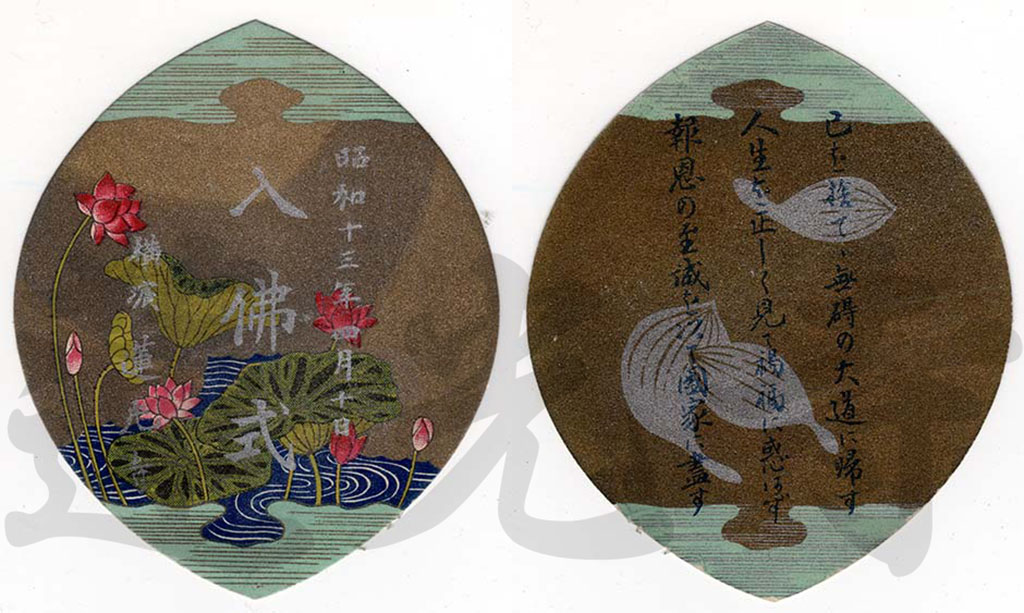 昭和十三年四月十日
入佛式
横濱 蓮光寺
己を捨てゝ無碍の大道に帰す
人生を正しく見て禍福に惑はず
報恩の至誠を以て國家に盡す
蓮光寺